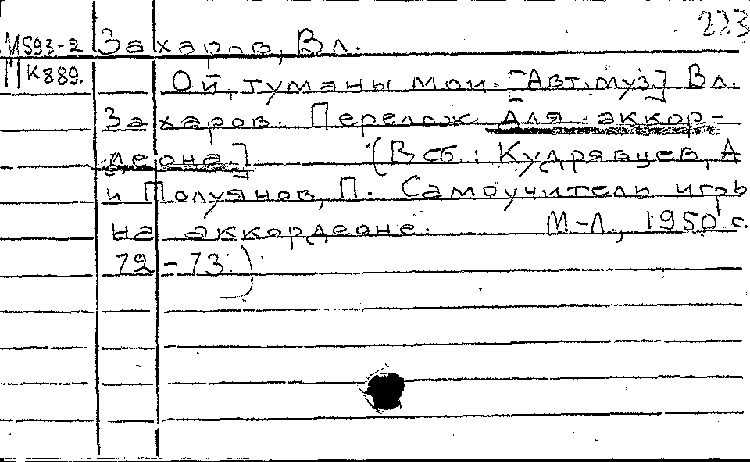 223
М593-2 Захаров, Вл.
К889. Ой, туманы мои. [Авт. муз.] Вл.
Захаров. Перелож. для аккор-
деона.] (В сб: Кудрявцев, А
и Полуянов, П. Самоучитель игры
на аккордеоне. М-Л, 1950 с.
72-73.)